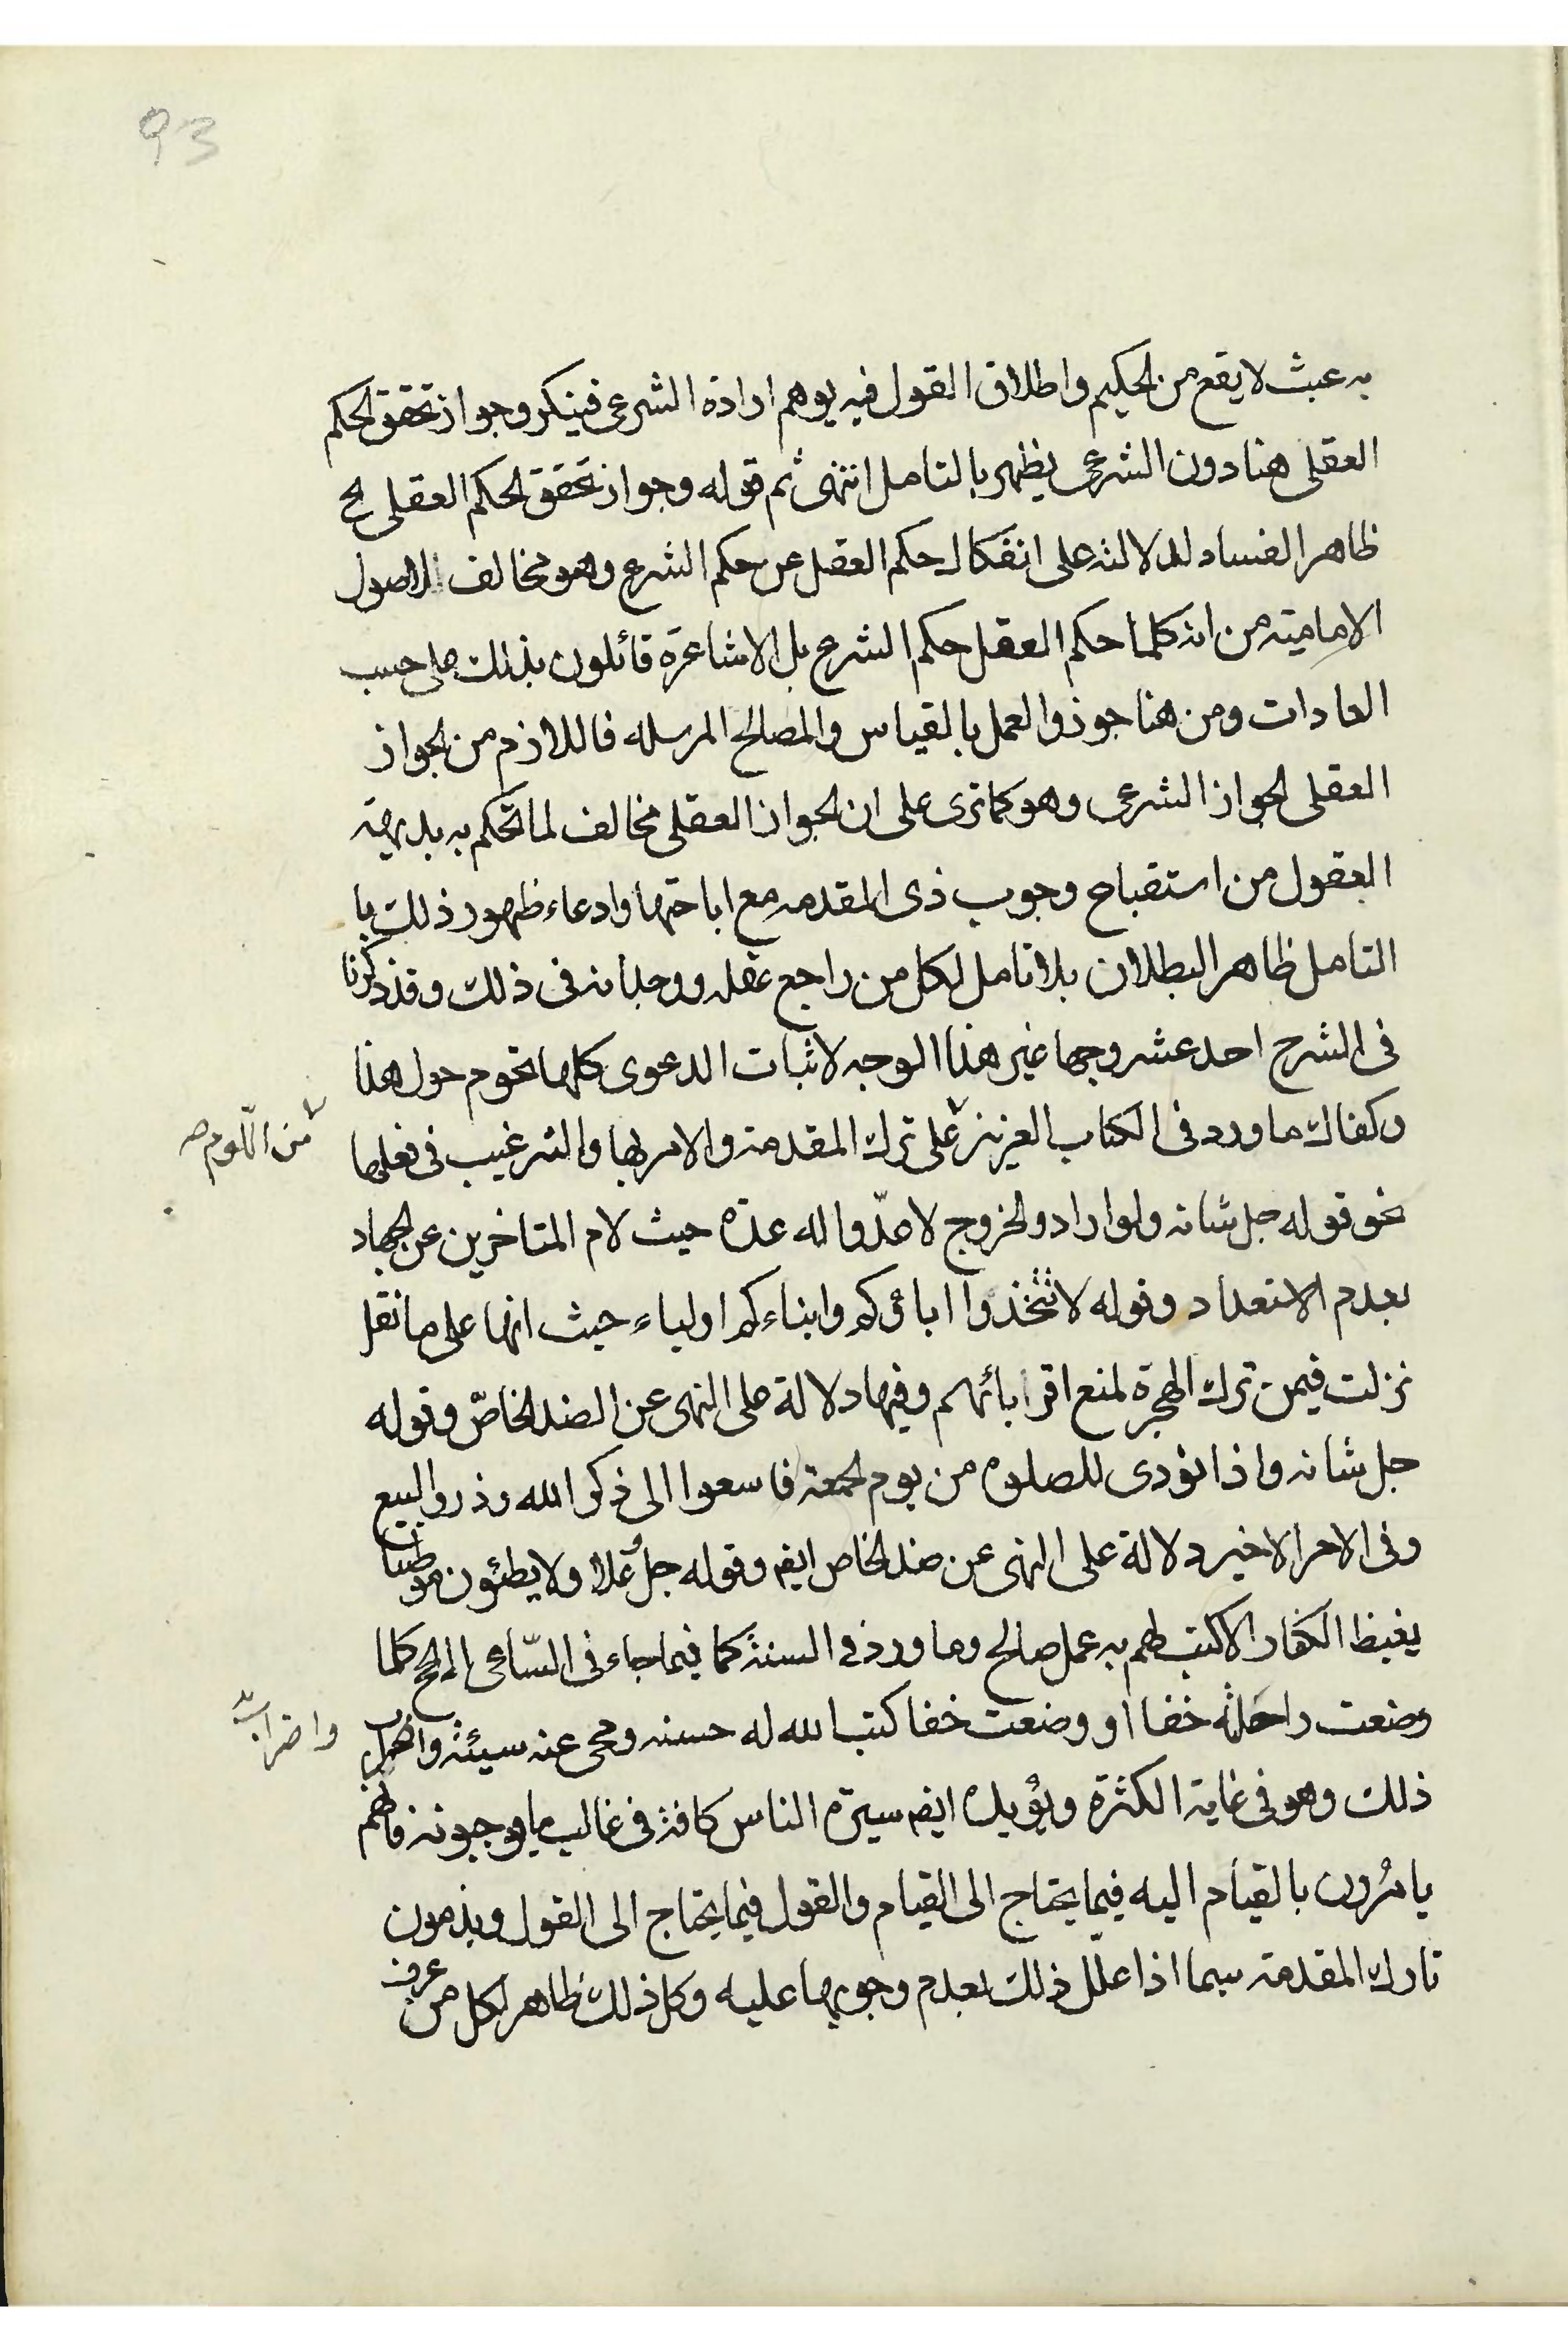 93
به عبث لا يقع من الحكيم واطلاق القول فيه يوهم ارادة الشرعى فينكر وجواز تحقق الحكم
العقلى هنا دون الشرعى يظهر بالتامل انتهى ثم قوله وجواز تحقق الحكم العقلى الخ
ظاهر الفساد لدلالته على انفكاك حكم العقل عن حكم الشرع وهو مخالف للاصول
الامامية من انه كلما حكم العقل حكم الشرع بل الاشاعرة قائلون بذلك على حسب
العادات ومن هنا جوزوا العمل بالقياس والمصالح المرسله فاللازم من الجواز
العقلى الجواز الشرعى وهو كما ترى على ان الجواز العقلى مخالف لما تحكم به بديهة
العقول من استقباح وجوب ذى المقدمه مع اباحتها وادعاء ظهور ذلك با
التامل ظاهر البطلان بلا تامل لكل من راجع عقله ووجدانه فى ذلك وقد ذكرنا
فى الشرح احد عشر وجها غير هذا الوجه لاثبات الدعوى كلها تحوم حول هذا
وكفاك ما ورد فى الكتاب العزيز على ترك المقدمة والامر بها والترغيب فى فعلها
من اللوم صح
نحو قوله جل شانه ولو ارادو الخروج لاعدّوا له عدة حيث لام المتاخرين عن الجهاد
بعدم الاستعداد وقوله لا تتخذوا اباؤكم وابناءكم اولياء حيث انها على ما نقل
نزلت فيمن ترك الهجرة لمنع اقربائهم وفيها دلالة على النهى عن الضد الخاصّ وقوله
جل شانه واذا نودى للصلوة من يوم الجمعة فاسعوا الى ذكر الله وذروا البيع
وفى الامر الاخير دلالة على النهى عن ضد الخاص ايضم وقوله جل وعلا ولا يطئون موطئا
يغيظ الكفار الا كتب لهم به عمل صالح وما ورد فى السنة كما فيما جاء فى السّاعى الى الحج كلما
وضعت راحلته خفا او وضعت خفا كتب الله له حسنه ومحى عنه سيئة واضراب
واضراب
ذلك وهو فى غاية الكثرة ويؤيده ايضم سيرة الناس كافة فى غالب ما يوجبونه فانهم
يامرون بالقيام اليه فيما يحتاج الى القيام والقول فيما يحتاج الى القول ويذمون
تارك المقدمة سيما اذا علل ذلك بعدم وجوبها عليه وكل ذلك ظاهر لكل من عرف